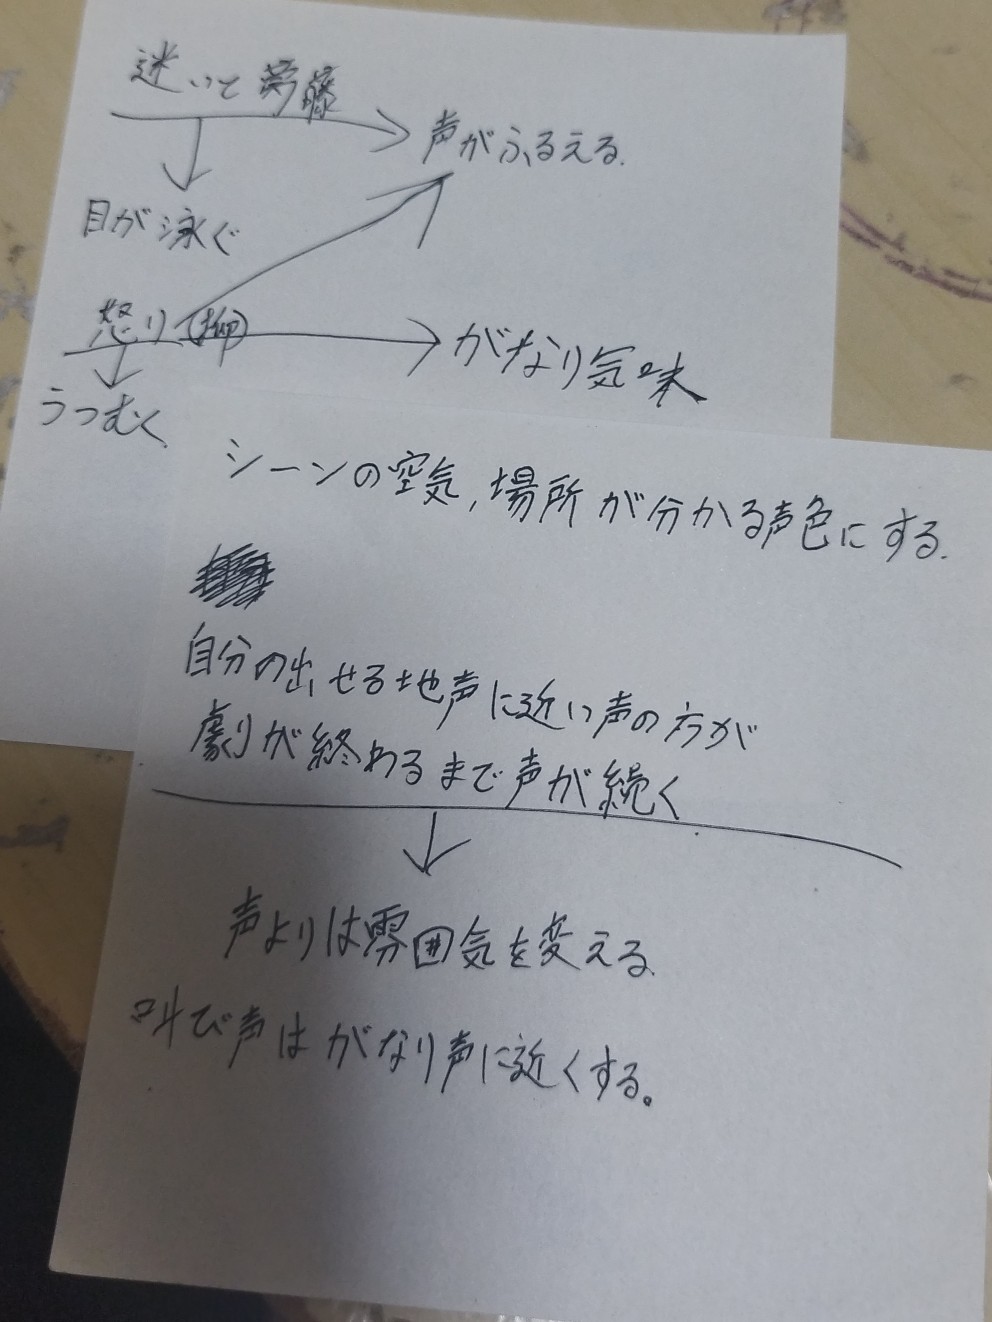 迷いと葛藤
声がふるえる.
目が泳ぐ
怒り
がなり気味
うつむく
シーンの空気,場所が分かる声色にする.
自分の出せる地声に近い声の方が
劇が終わるまで声が続く
声よりは雰囲気を変える.
叫び声はがなり声に近くする。